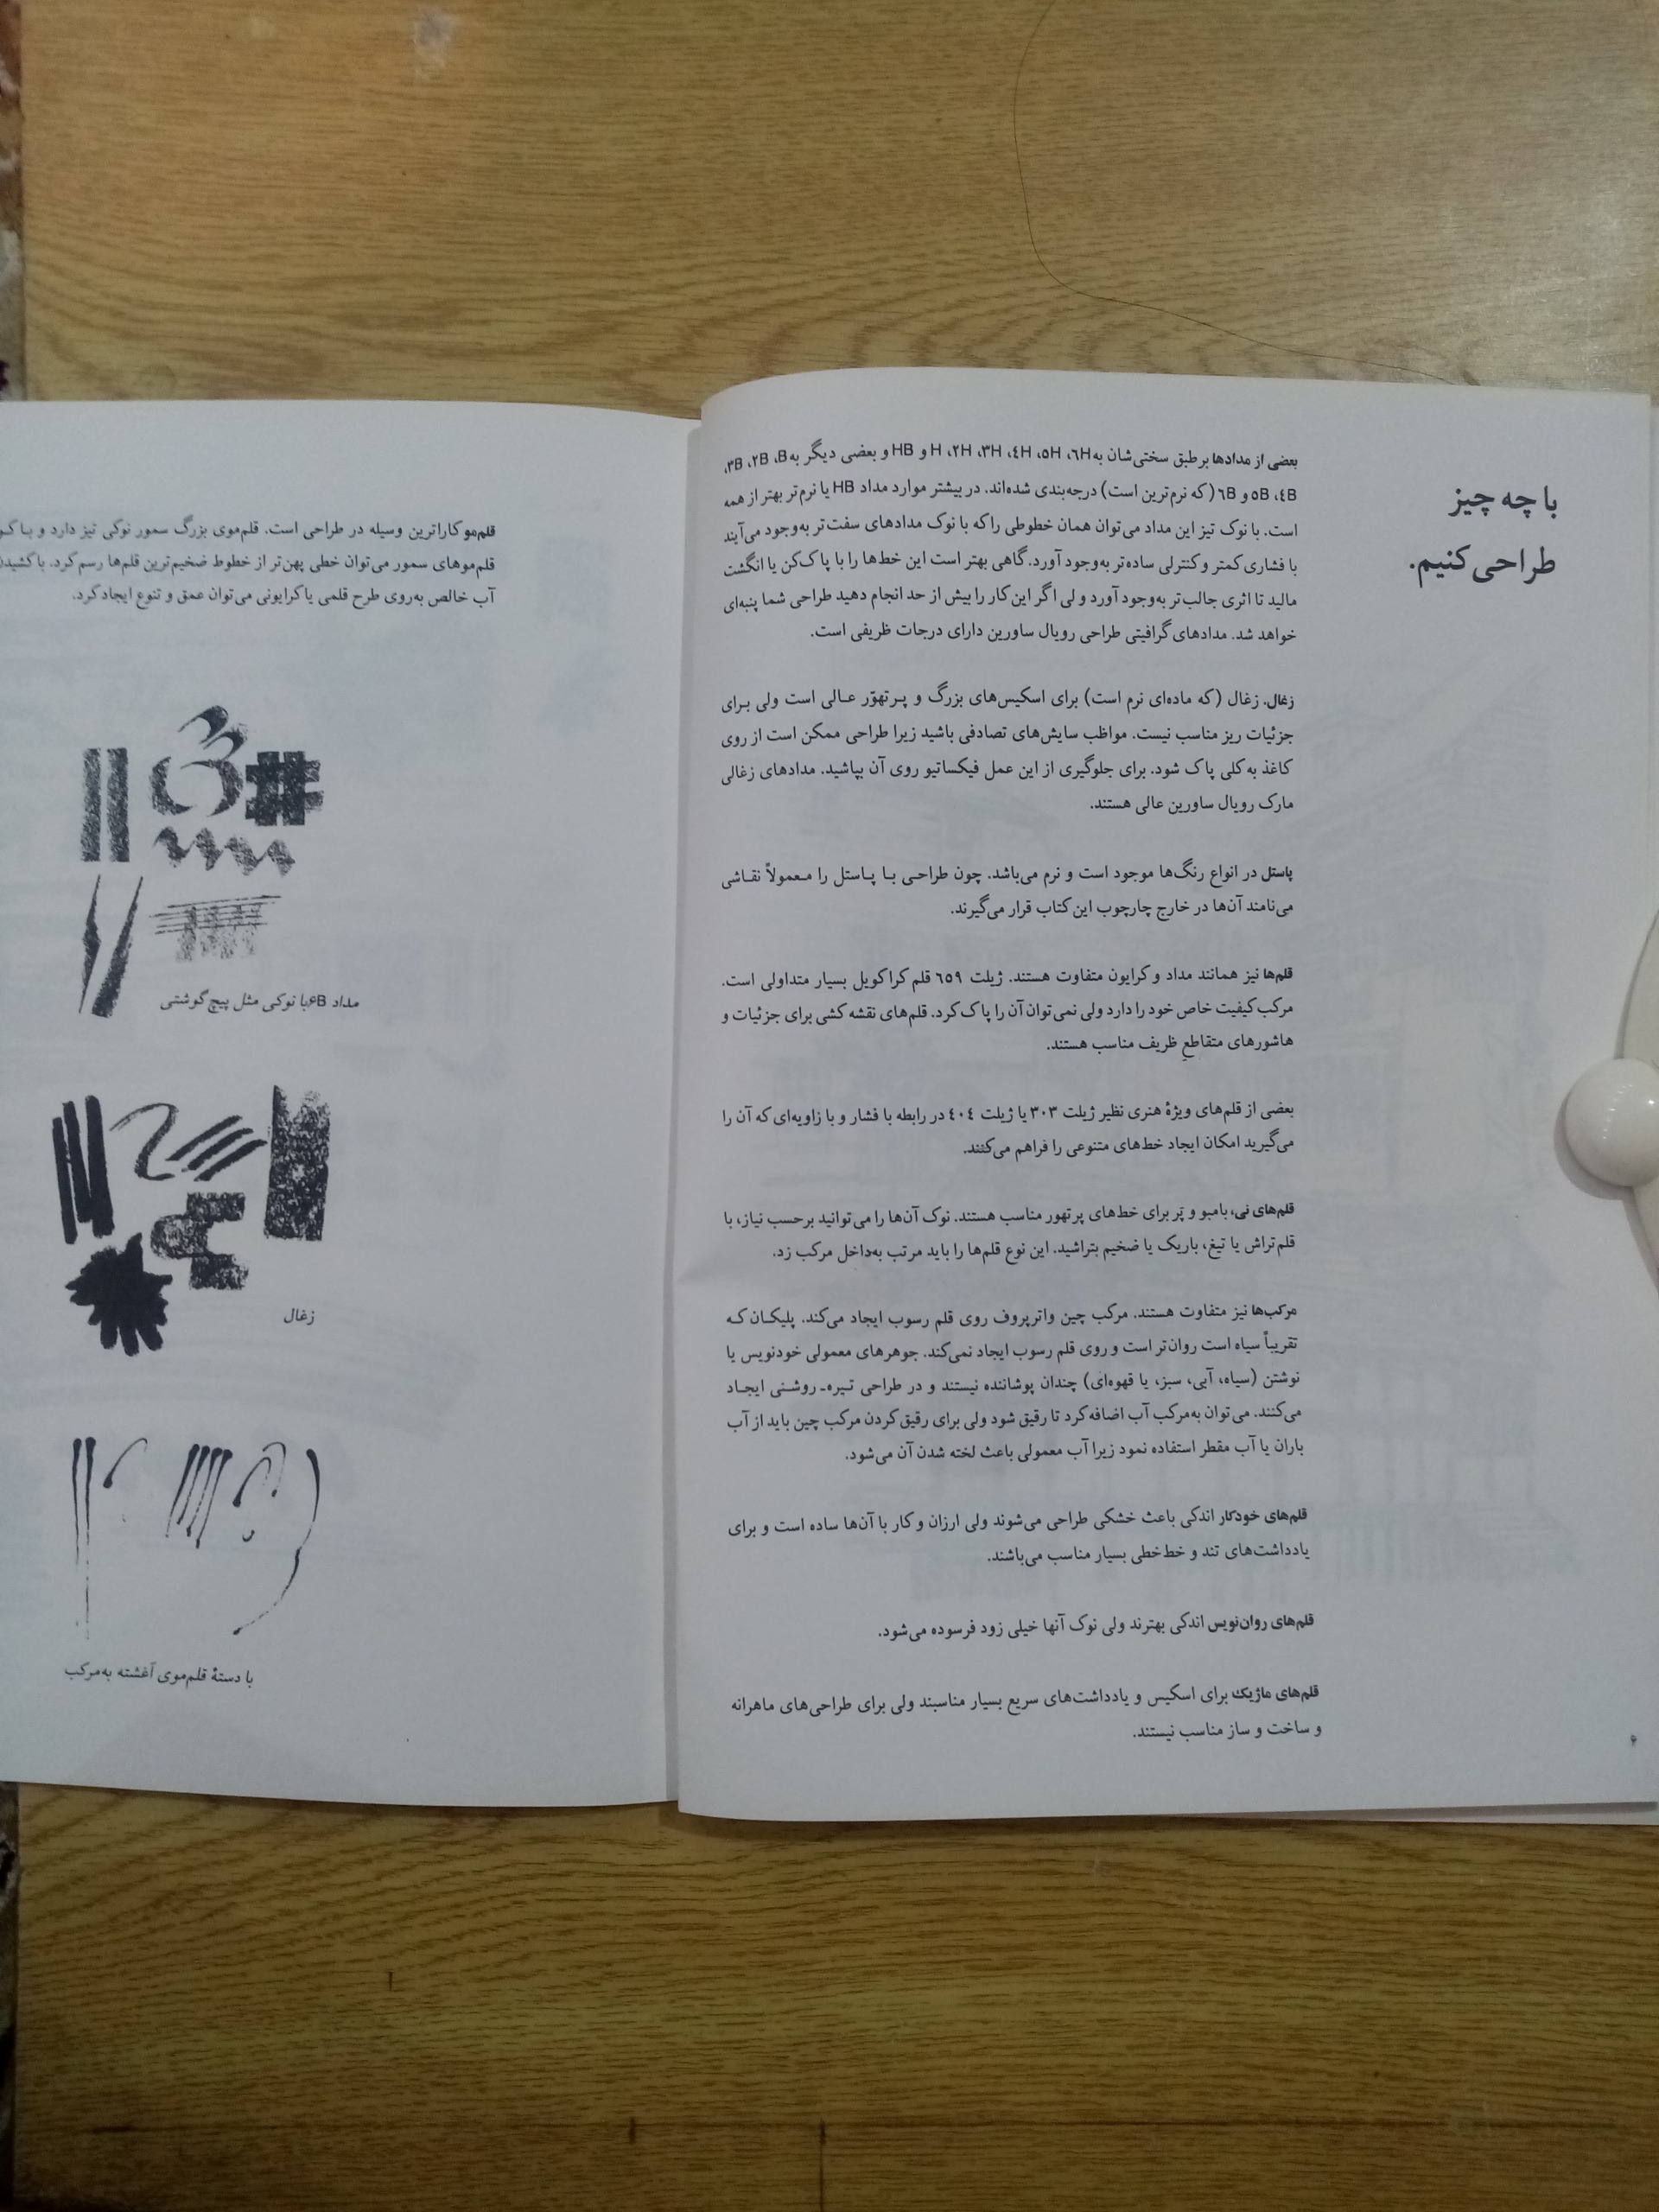 با چه چیز
طراحی کنیم.
بعضی از مدادها بر طبق سختی‌شان به ٦H، ٥H، ٤H، ٣H، ٢H، H و HB و بعضی دیگر به B، ٢B، ٣B،
٤B، ٥B و ٦B (که نرم‌ترین است) درجه‌بندی شده‌اند. در بیشتر موارد مداد HB یا نرم‌تر بهتر از همه
است. با نوک تیز این مداد می‌توان همان خطوطی را که با نوک مدادهای سفت‌تر به‌وجود می‌آیند
با فشاری کمتر و کنترلی ساده‌تر به‌وجود آورد. گاهی بهتر است این خط‌ها را با پاک‌کن یا انگشت
مالید تا اثری جالب‌تر به‌وجود آورد ولی اگر این کار را بیش از حد انجام دهید طراحی شما پنبه‌ای
خواهد شد. مدادهای گرافیتی طراحی رویال ساورین دارای درجات ظریفی است.
زغال. زغال (که ماده‌ای نرم است) برای اسکیس‌های بزرگ و پرتهوّر عالی است ولی برای
جزئیات ریز مناسب نیست. مواظب سایش‌های تصادفی باشید زیرا طراحی ممکن است از روی
کاغذ به کلی پاک شود. برای جلوگیری از این عمل فیکساتیو روی آن بپاشید. مدادهای زغالی
مارک رویال ساورین عالی هستند.
پاستل در انواع رنگ‌ها موجود است و نرم می‌باشد. چون طراحی با پاستل را معمولاً نقاشی
می‌نامند آن‌ها در خارج چارچوب این کتاب قرار می‌گیرند.
قلم‌ها نیز همانند مداد و کرایون متفاوت هستند. ژیلت ٦٥٩ قلم کراکویل بسیار متداولی است.
مرکب کیفیت خاص خود را دارد ولی نمی‌توان آن را پاک کرد. قلم‌های نقشه کشی برای جزئیات و
هاشورهای متقاطعِ ظریف مناسب هستند.
بعضی از قلم‌های ویژهٔ هنری نظیر ژیلت ٣٠٣ یا ژیلت ٤٠٤ در رابطه با فشار و با زاویه‌ای که آن را
می‌گیرید امکان ایجاد خط‌های متنوعی را فراهم می‌کنند.
قلم‌های نی، بامبو و پَر برای خط‌های پرتهور مناسب هستند. نوک آن‌ها را می‌توانید برحسب نیاز، با
قلم‌تراش یا تیغ، باریک یا ضخیم بتراشید. این نوع قلم‌ها را باید مرتب به‌داخل مرکب زد.
مرکب‌ها نیز متفاوت هستند. مرکب چین واترپروف روی قلم رسوب ایجاد می‌کند. پلیکان که
تقریباً سیاه است روان‌تر است و روی قلم رسوب ایجاد نمی‌کند. جوهرهای معمولی خودنویس یا
نوشتن (سیاه، آبی، سبز، یا قهوه‌ای) چندان پوشاننده نیستند و در طراحی تیره‌ـ روشنی ایجاد
می‌کنند. می‌توان به‌مرکب آب اضافه کرد تا رقیق شود ولی برای رقیق کردن مرکب چین باید از آب
باران یا آب مقطر استفاده نمود زیرا آب معمولی باعث لخته شدن آن می‌شود.
قلم‌های خودکار اندکی باعث خشکی طراحی می‌شوند ولی ارزان و کار با آن‌ها ساده است و برای
یادداشت‌های تند و خط‌خطی بسیار مناسب می‌باشند.
قلم‌های روان‌نویس اندکی بهترند ولی نوک آنها خیلی زود فرسوده می‌شود.
قلم‌های ماژیک برای اسکیس و یادداشت‌های سریع بسیار مناسبند ولی برای طراحی‌های ماهرانه
و ساخت و ساز مناسب نیستند.
۶
قلم‌مو کاراترین وسیله در طراحی است. قلم‌موی بزرگ سمور نوکی تیز دارد و با
قلم‌موهای سمور می‌توان خطی پهن‌تر از خطوط ضخیم‌ترین قلم‌ها رسم کرد. با کشیدن
آب خالص به‌روی طرح قلمی یا کرایونی می‌توان عمق و تنوع ایجاد کرد.
مداد ۶B با نوکی مثل پیچ گوشتی
زغال
با دستهٔ قلم‌موی آغشته به‌مرکب